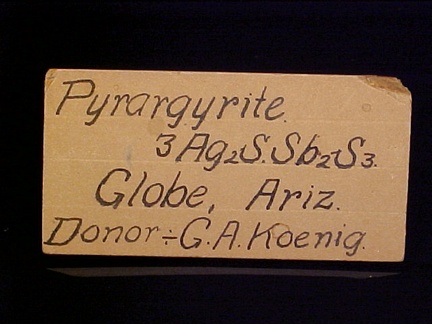 Pyrargyrite.
3Ag₂S.Sb₂S₃.
Globe, Ariz.
Donor÷G.A.Koenig.